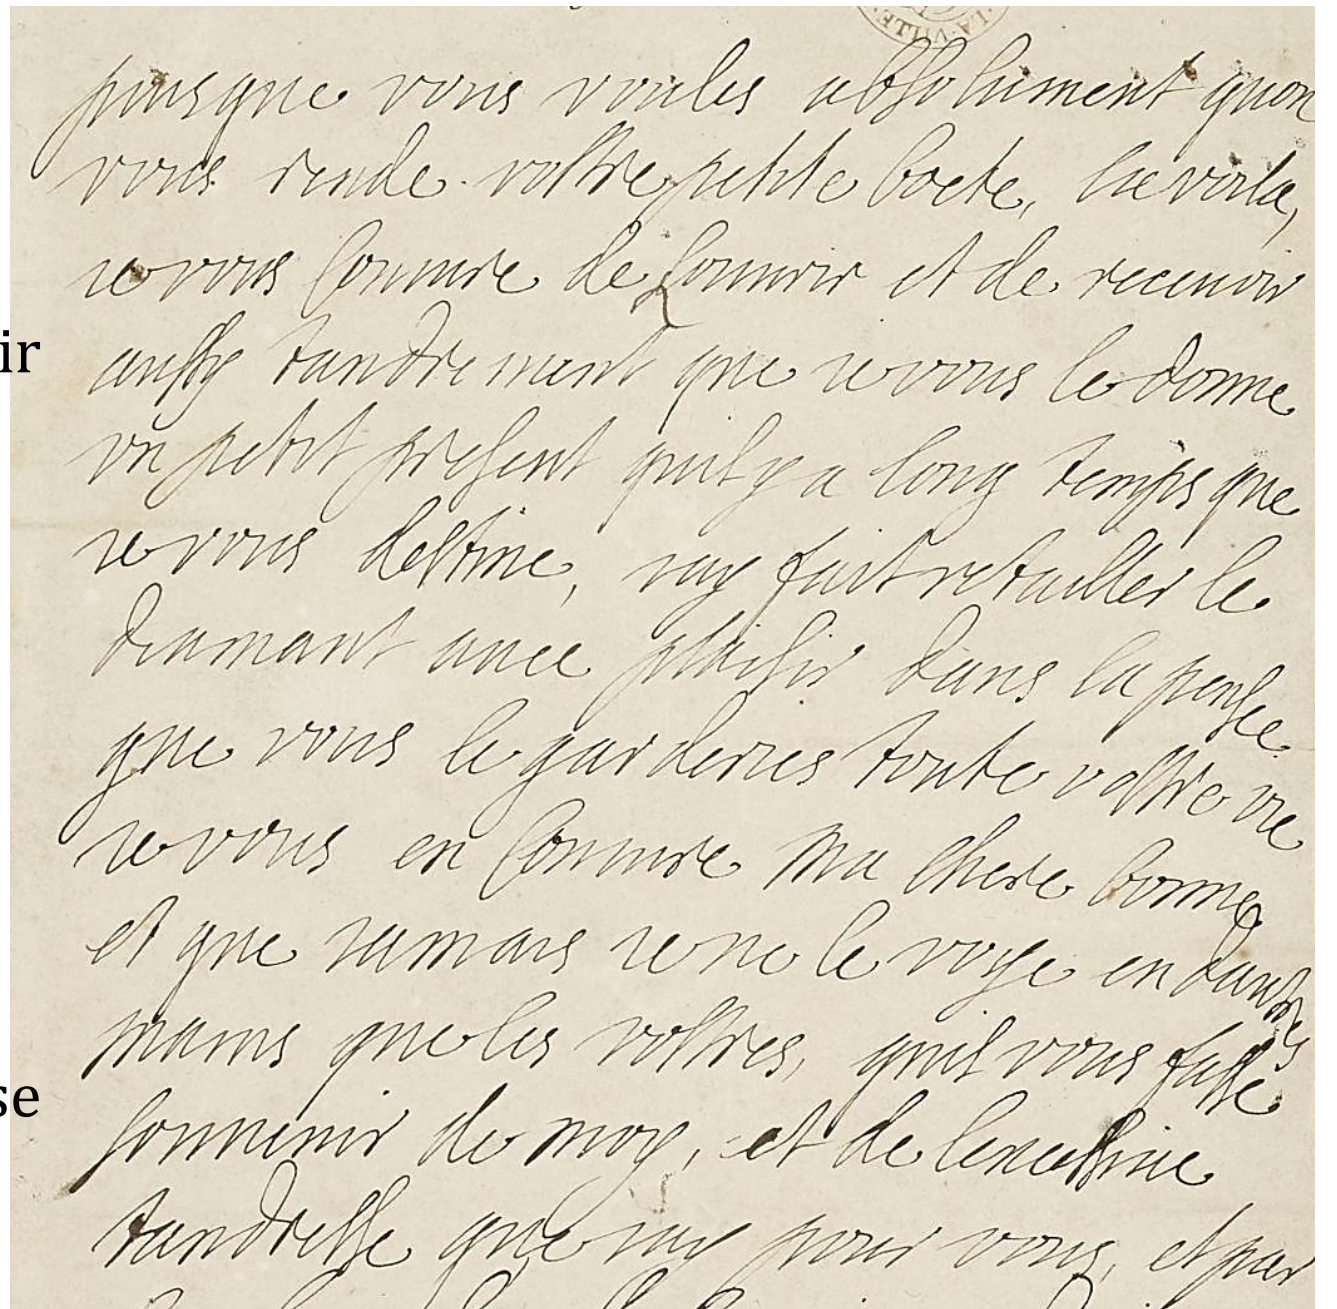 LA VILLE
puisque vous voules absolument quon
vous rende vostre petite boete, la voila,
ie vous coniure de louurir et de receuoir
ir
aussy tandrement que ie vous le donne
vn petit present quil y a long temps que
ie vous destine, iay fait retailler le
diamant auec plaisir dans la pensee
que vous le garderies toute vostre vie
ie vous en coniure ma chere bonne
et que iamais ie ne le voye en dautres
mains que les vostres, quil vous fasse
se
souuenir de moy, et de lexcessiue
tandresse que iay pour vous, et par